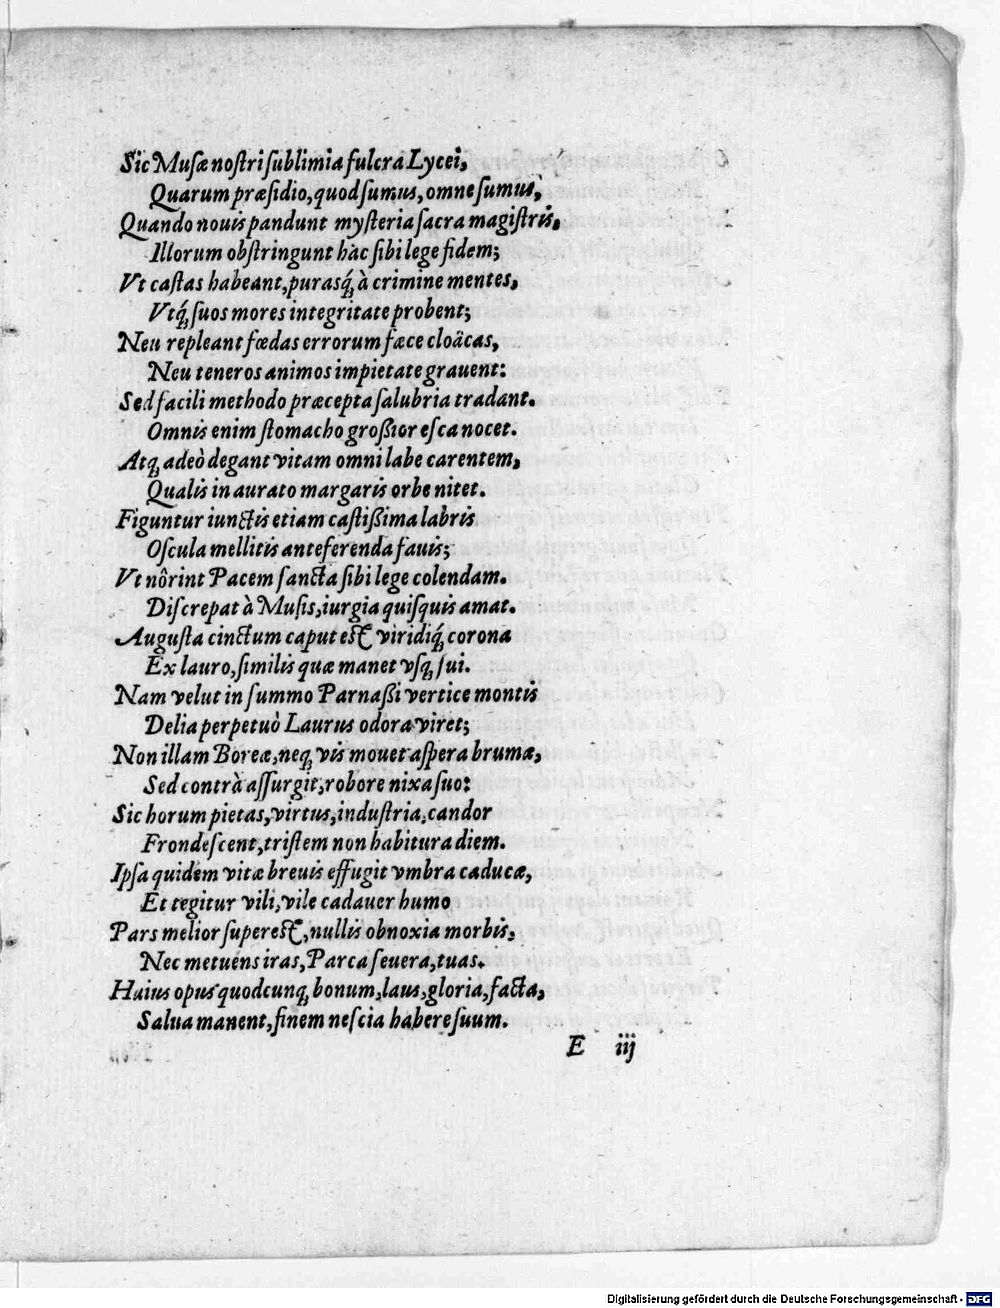 Sic Musæ nostri sublimia fulcra Lycei,
Quarum præsidio, quod sumus, omne sumus,
Quando nouis pandunt mysteria sacra magistris,
Illorum obstringunt hàc sibi lege fidem;
Vt castas habeant, purasq́; à crimine mentes,
Vtq́; suos mores integritate probent;
Neu repleant fœdas errorum fæce cloäcas,
Neu teneros animos impietate grauent:
Sed facili methodo præcepta salubria tradant.
Omnis enim stomacho großior esca nocet.
Atq; adeò degant vitam omni labe carentem,
Qualis in aurato margaris orbe nitet.
Figuntur iunctis etiam castißima labris
Oscula mellitis anteferenda fauis;
Vt nôrint Pacem sancta sibi lege colendam.
Discrepat à Musis, iurgia quisquis amat.
Augusta cinctum caput est viridiq́; corona
Ex lauro, similis quæ manet vsq; sui.
Nam velut in summo Parnaßi vertice montis
Delia perpetuò Laurus odora viret;
Non illam Boreæ, neq; vis mouet aspera brumæ,
Sed contrà assurgit, robore nixa suo:
Sic horum pietas, virtus, industria, candor
Frondescent, tristem non habitura diem.
Ipsa quidem vitæ breuis effugit vmbra caducæ,
Et tegitur vili, vile cadauer humo
Pars melior superest, nullis obnoxia morbis,
Nec metuens iras, Parca seuera, tuas.
Huius opus quodcunq; bonum, laus, gloria, facta,
Salua manent, finem nescia habere suum.
E iij
Digitalisierung gefördert durch die Deutsche Forschungsgemeinschaft - DFG